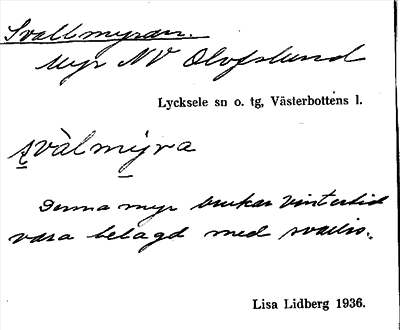 Svallmyran.
Myr NV Olofslund
Lycksele sn o. tg, Västerbottens l.
svàlmyra
Denna myr brukar vintertid
vara belagd med svallis.
Lisa Lidberg 1936.